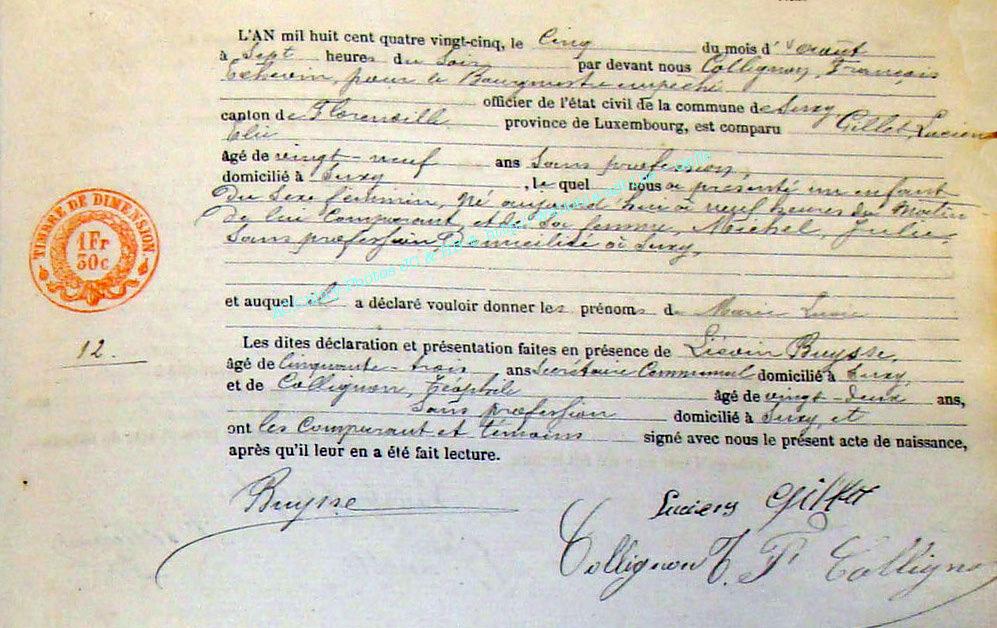 L'AN mil huit cent quatre vingt-cinq, le Cinq du mois d' aout
à Sept heures du Soir par devant nous Collignon, François
Echevin, pour le Bourgmestre empêché
officier de l'état civil de la commune de Suxy
canton de Florenville province de Luxembourg, est comparu Gillet, Lucien
Elie
âgé de vingt-neuf ans Sans profession,
domicilié à Suxy, le quel nous a présenté un enfant
du Sexe féminin, né aujourd'hui à neuf heures du Matin
De lui Comparant et de Sa femme Michel, Julie,
Sans profession Domiciliée à Suxy,
et auquel il a déclaré vouloir donner les prénoms de Marie
Les dites déclaration et présentation faites en présence de Liévin Buysse,
âgé de Cinquante-trois ans Secrétaire Communal domicilié à Suxy,
et de Collignon, Théophile âgé de vingt-deux ans,
Sans profession domicilié à Suxy, et
ont les Comparant et témoins signé avec nous le présent acte de naissance,
après qu'il leur en a été fait lecture.
TIMBRE DE DIMENSION
1 Fr
30c
12.
Buysse
Lucien Gillet
Collignon T. F. Collignon